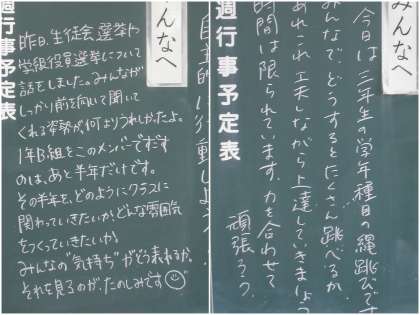 みんなへ
週行事予定表
昨日、生徒会選挙や
学級役員選挙について
話をしました。みんなが
しっかり前を向いて聞いて
くれる姿勢が、何よりうれしかったよ。
1年B組をこのメンバーですごす
のは、あと半年だけです。
その半年を、どのようにクラスに
関わっていきたいか、どんな雰囲気
をつくっていきたいか!
みんなの"気持ち"がどう表れるか、
それを見るのが、たのしみです
自主的に行動しよう
みんなへ
今日は三年生の学年種目の縄跳びです
みんなで、どうするとたくさん跳べるか、
あれこれ工夫しながら上達していきましょう
時間は限られています。力を合わせて
頑張ろう。
週行事予定表